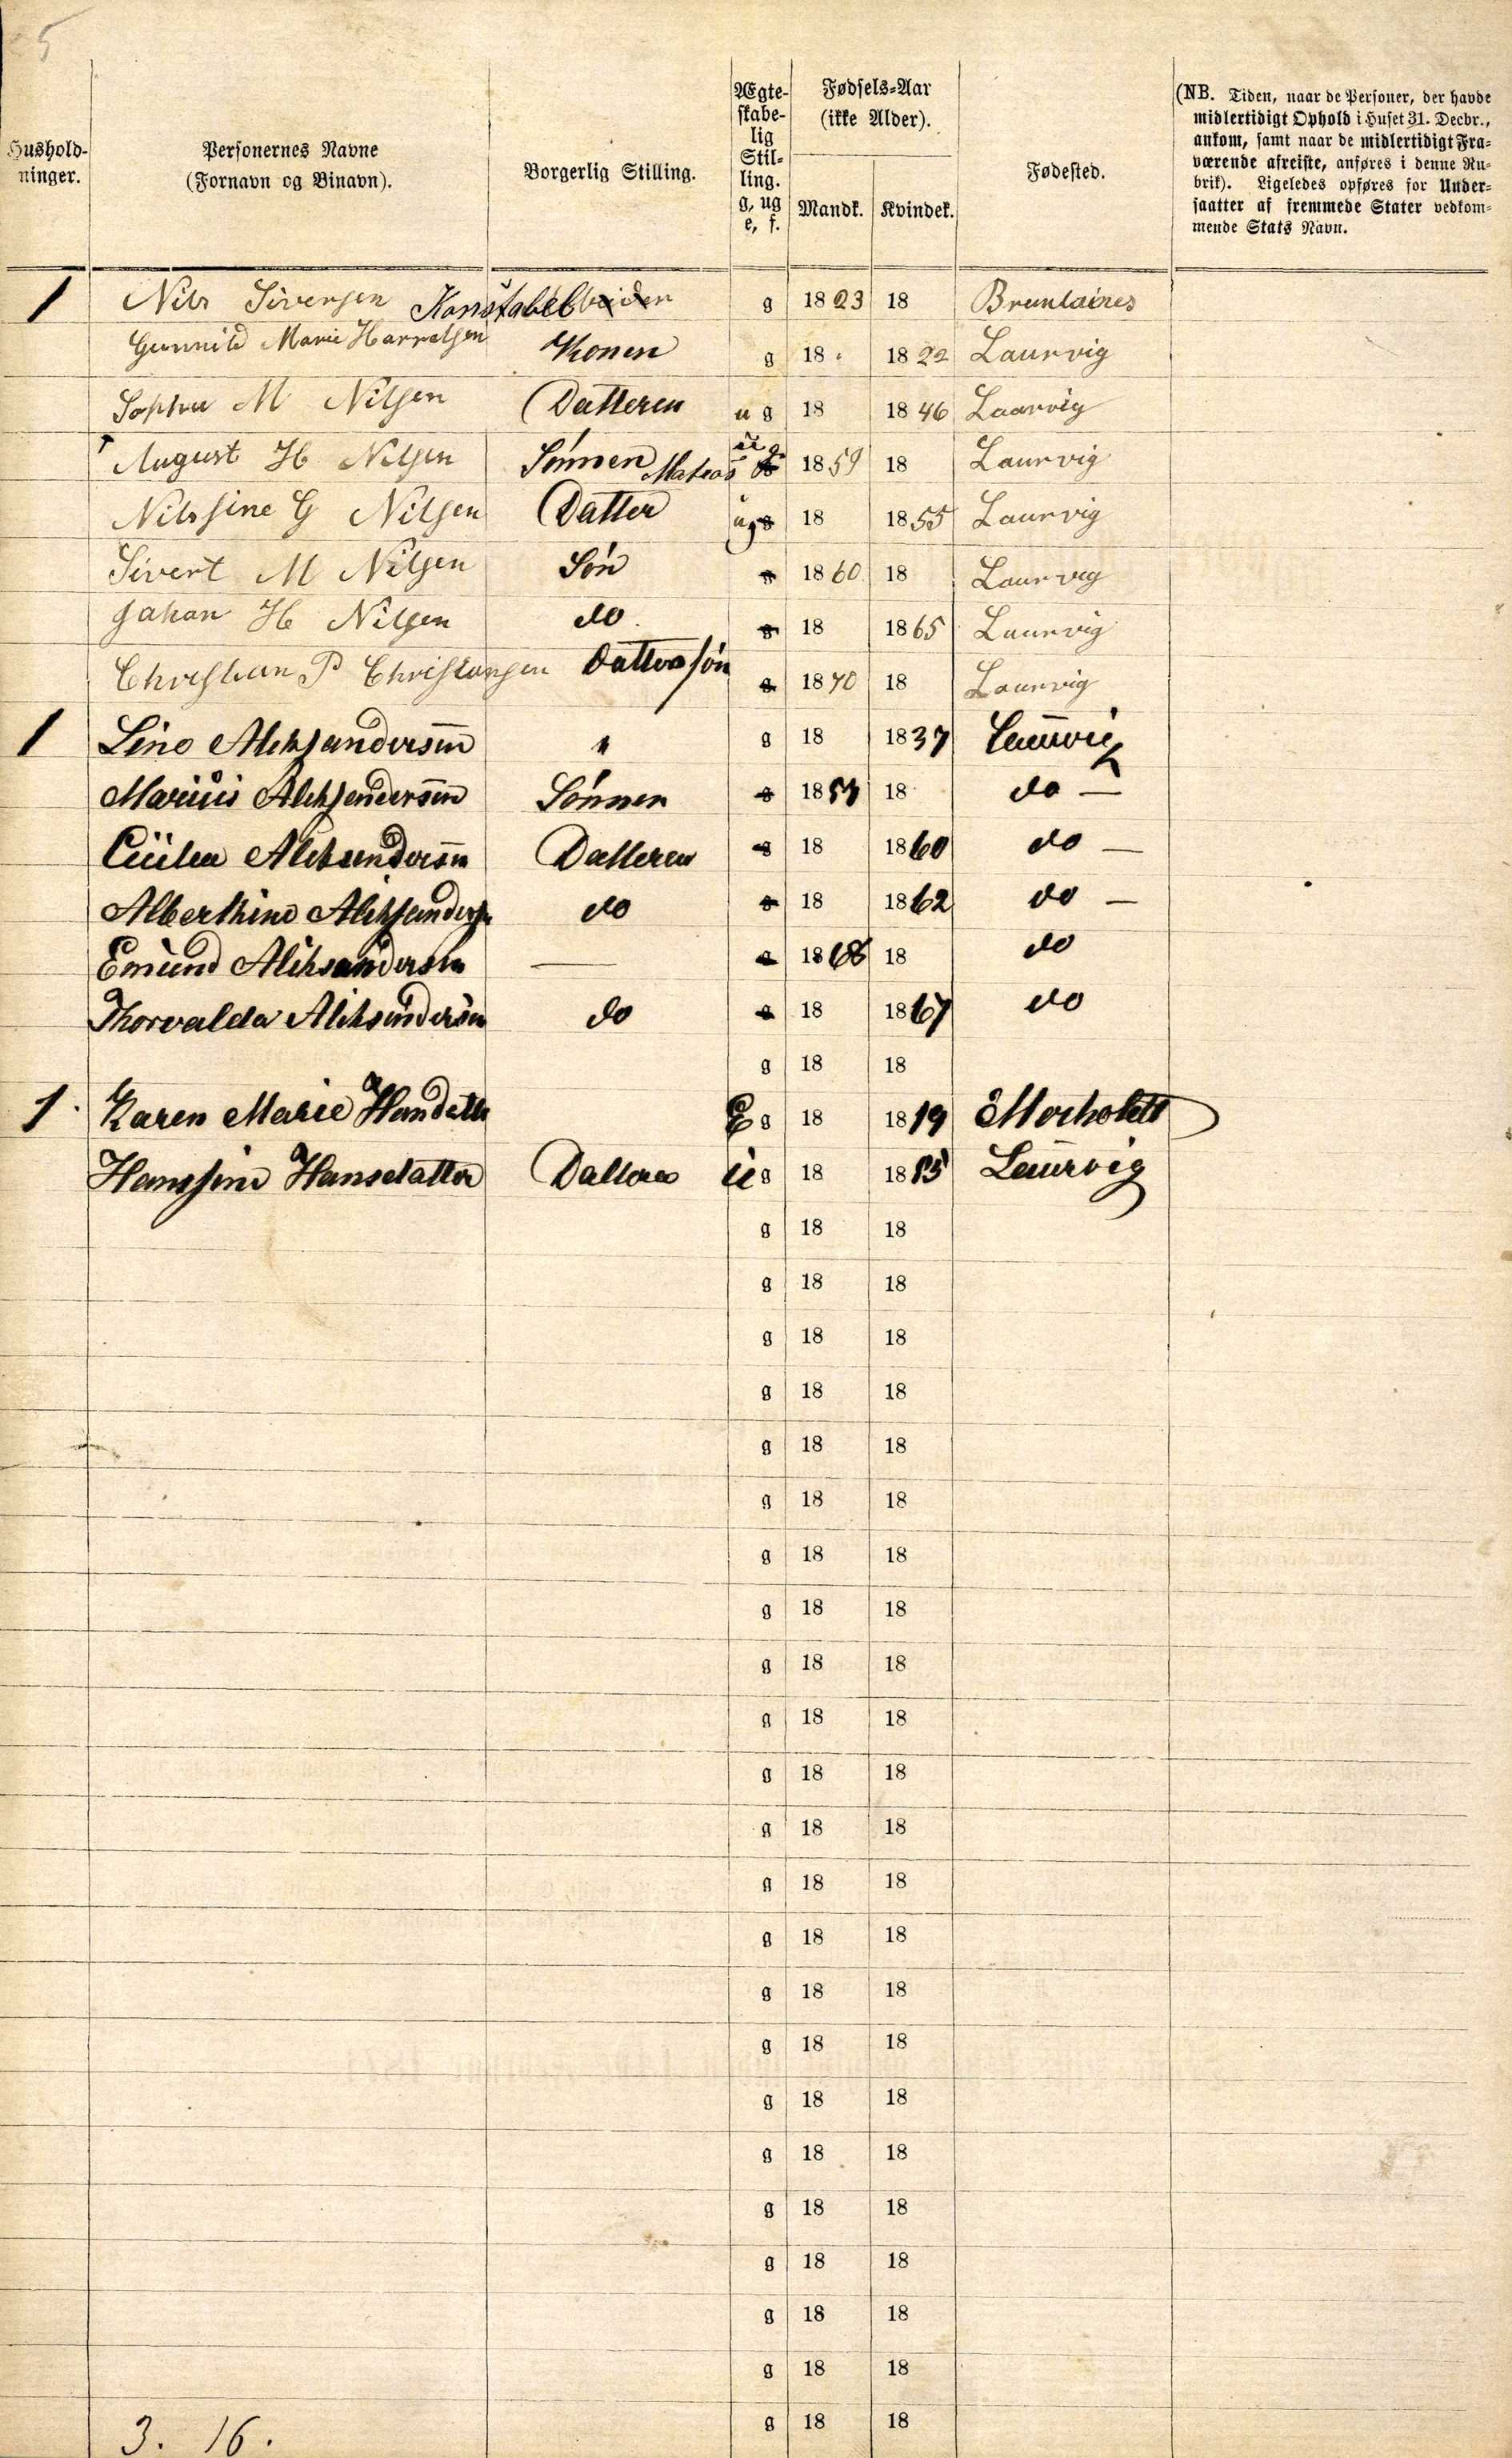 5
Hushold-
ninger.
Personernes Navne
(Fornavn og Binavn).
Borgerlig Stilling.
Ægte-
skabe-
lig
Stil-
ling.
g, ug
e, f.
Fødsels-Aar
(ikke Alder).
Mandk. Kvindek.
Fødested.
(NB. Tiden, naar de Personer, der havde
midlertidigt Ophold i Huset 31. Decbr.,
ankom, samt naar de midlertidigt Fra-
værende afreiste, anføres i denne Ru-
brik). Ligeledes opføres for Under-
saatter af fremmede Stater vedkom-
mende Stats Navn.
1 Nils Siversen Konstabel g 1823 18 Brunlaines
Gunnild Marie Harralsen Konen g 18 1822 Laurvig
Sophie M Nilsen Datteren u g 18 1846 Laurvig
August H Nilsen Sønnen Matros ug 1859 18 Laurvig
Nilssine G Nilsen Datter ug 18 1855 Laurvig
Sivert M Nilsen Søn g 1860 18 Laurvig
Johan H Nilsen do g 18 1865 Laurvig
Christian P Christiansen Dattersøn g 1870 18 Laurvig
1 Line Aleksandersen " g 18 1837 Laurvig
Marius Aleksandersen Sønnen g 18 18 do —
Aleksandersen Datteren g 18 1860 do —
Alberthine Aleksanders g 18 1862 do —
Emund Aleksandersen — g 1868 18 do
Thorvalda Aleksandersen do g 18 1867 do
g 18 18
1 Karen Marie E g 18 1819
Hanssine Hansdatter Datteren u g 18 1855 Laurvig
g 18 18
g 18 18
g 18 18
g 18 18
g 18 18
g 18 18
g 18 18
g 18 18
g 18 18
g 18 18
g 18 18
g 18 18
g 18 18
g 18 18
g 18 18
g 18 18
g 18 18
g 18 18
g 18 18
g 18 18
g 18 18
g 18 18
g 18 18
3. 16.